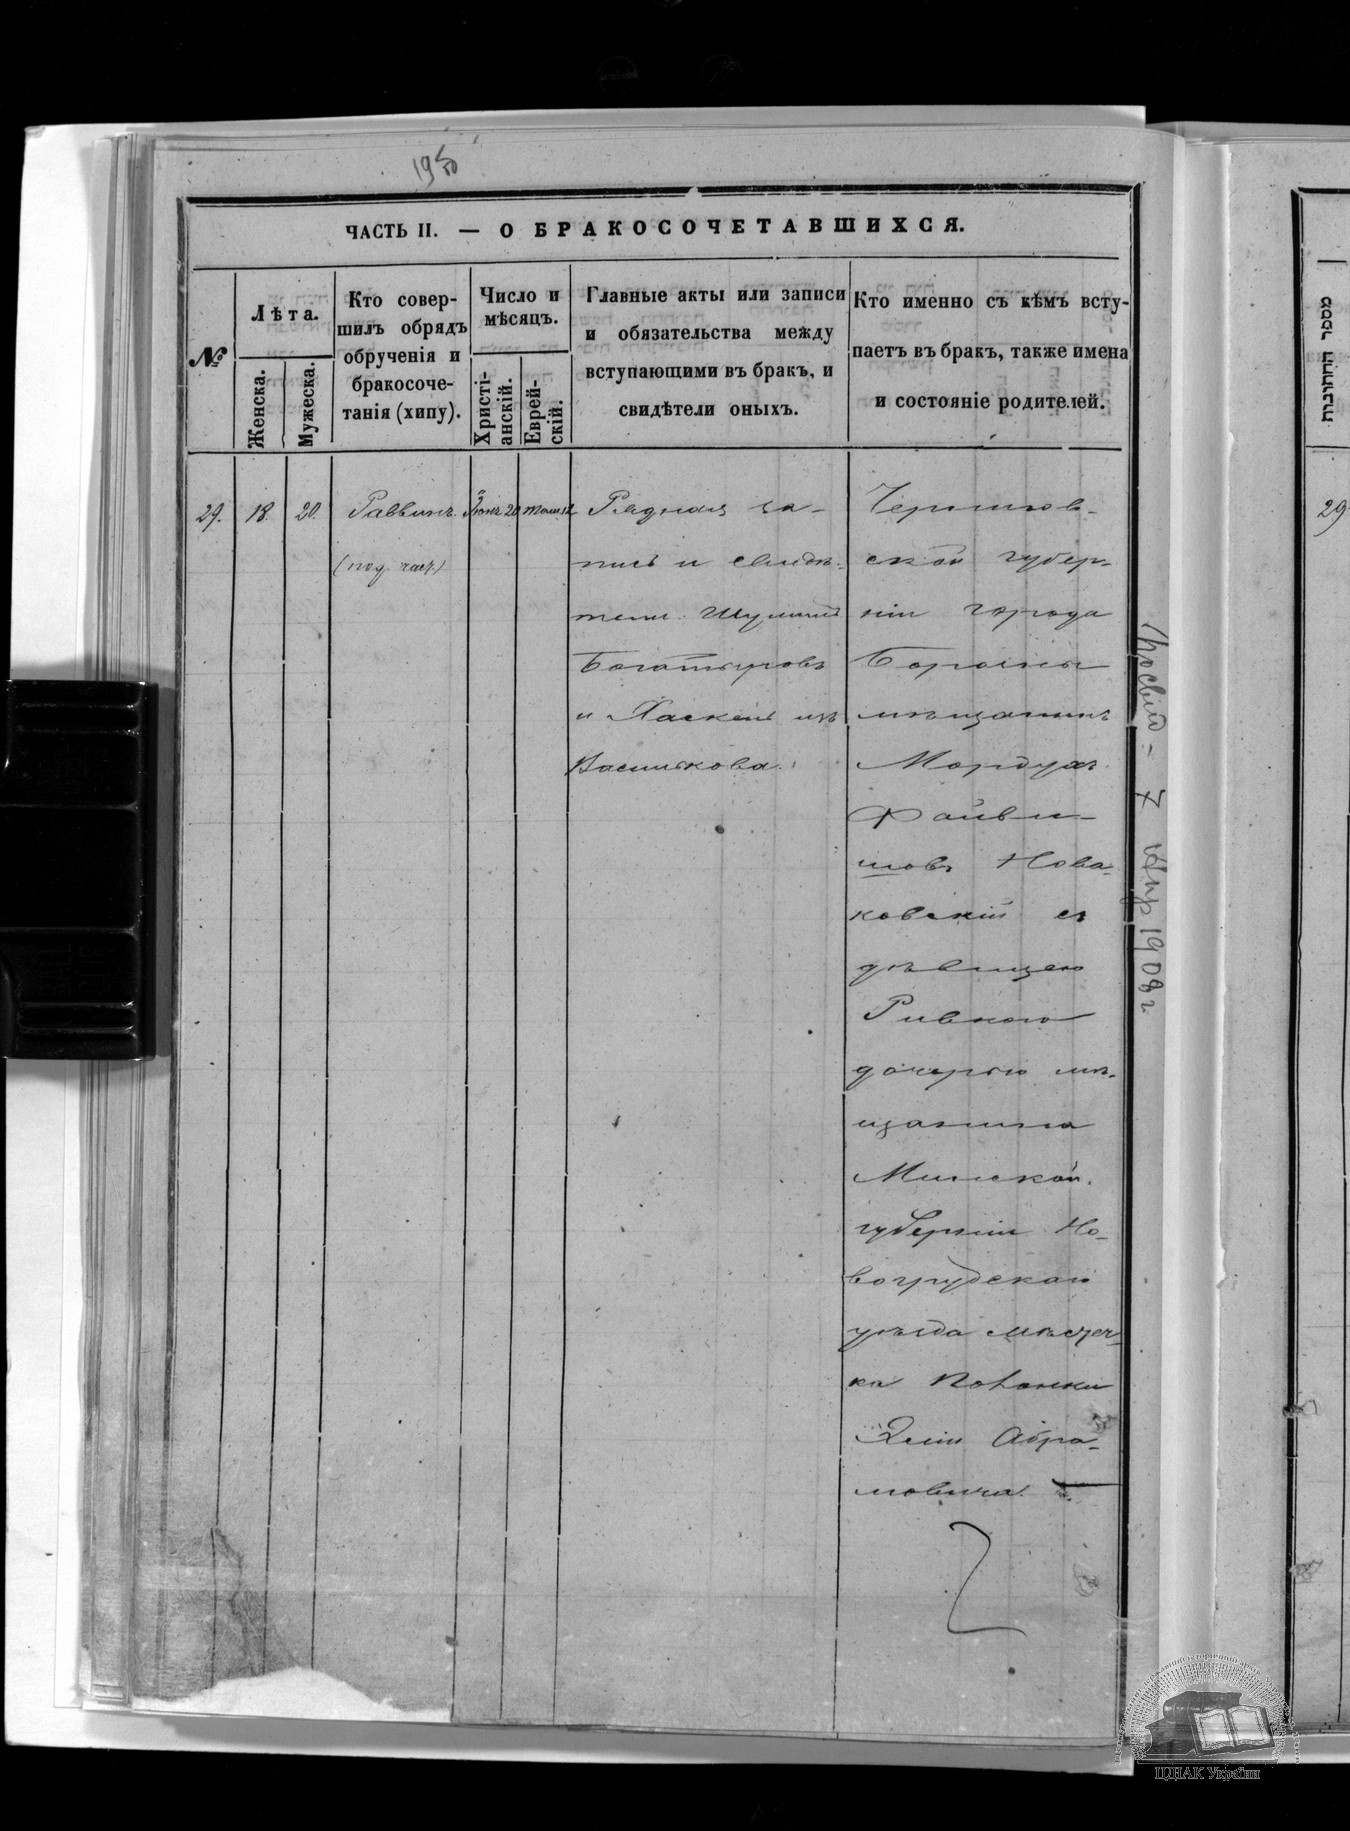 195
ЧАСТЬ II. — О БРАКОСОЧЕТАВШИХСЯ.
№
Лѣта.
Женска.
Мужеска.
Кто совер-
шилъ обрядъ
обрученія и
бракосоче-
танія (хипу).
Число и
мѣсяцъ.
Христі-
анскій.
Еврей-
скій.
Главные акты или записи
и обязательства между
вступающими въ бракъ, и
свидѣтели оныхъ.
Кто именно съ кѣмъ всту-
паетъ въ бракъ, также имена
и состояніе родителей.
29.
18.
20.
Раввинъ.
Іюнь 20
Рядная за-
пись и свидѣ-
тели
Богатыровъ
и Хаскель изъ
Василькова.
Чернигов-
ской губер-
ніи города
Борзны
мѣщанинъ
Мордухъ
Файви-
шовъ Нова-
ковскій съ
дѣвицею
Ривкою
дочерью мѣ-
щанина
Минской
губерніи Но-
вогрудскаго
уѣзда мѣстеч-
ка Полонки
Абра-
мовича.
7 Апр 1908 г.
מספר החתונות
29
ЦДІАК України